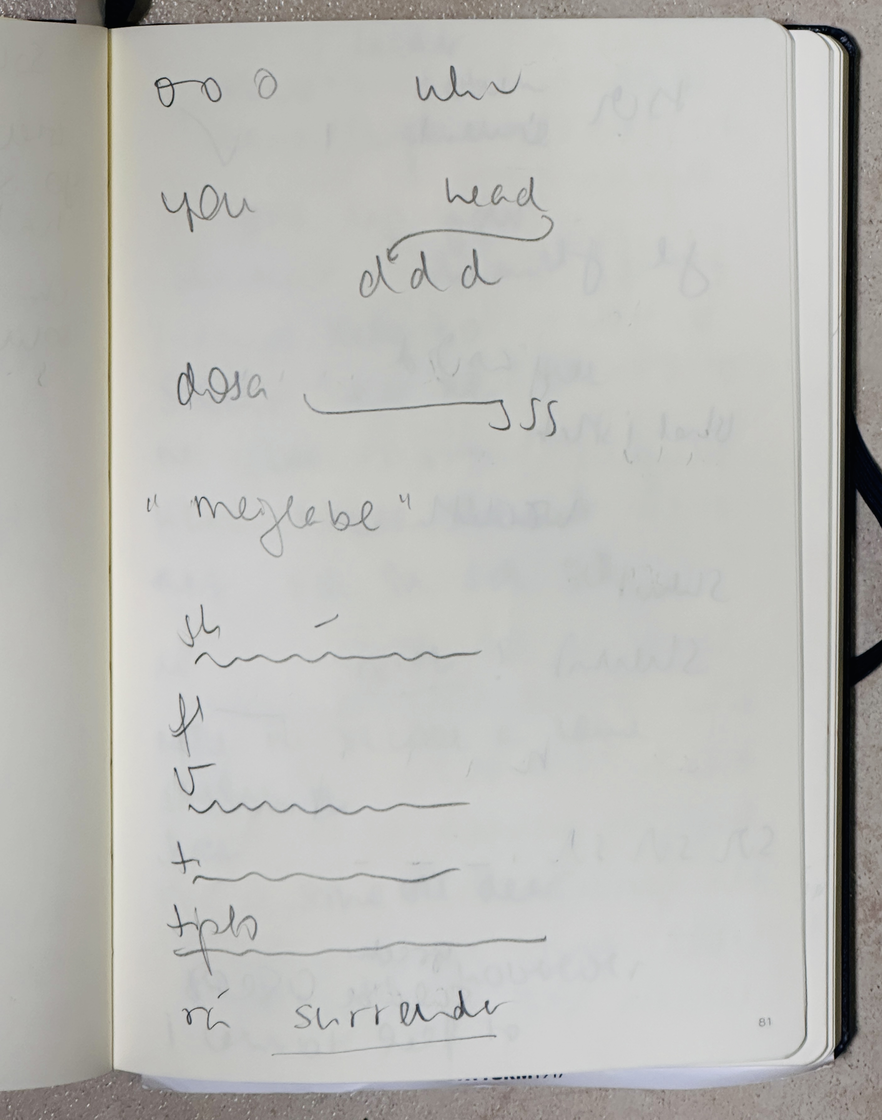 o o o
you head
d d d
dosa s s s
"meglabe"
sh
fl
v
t
tiplo
ri surrender
81